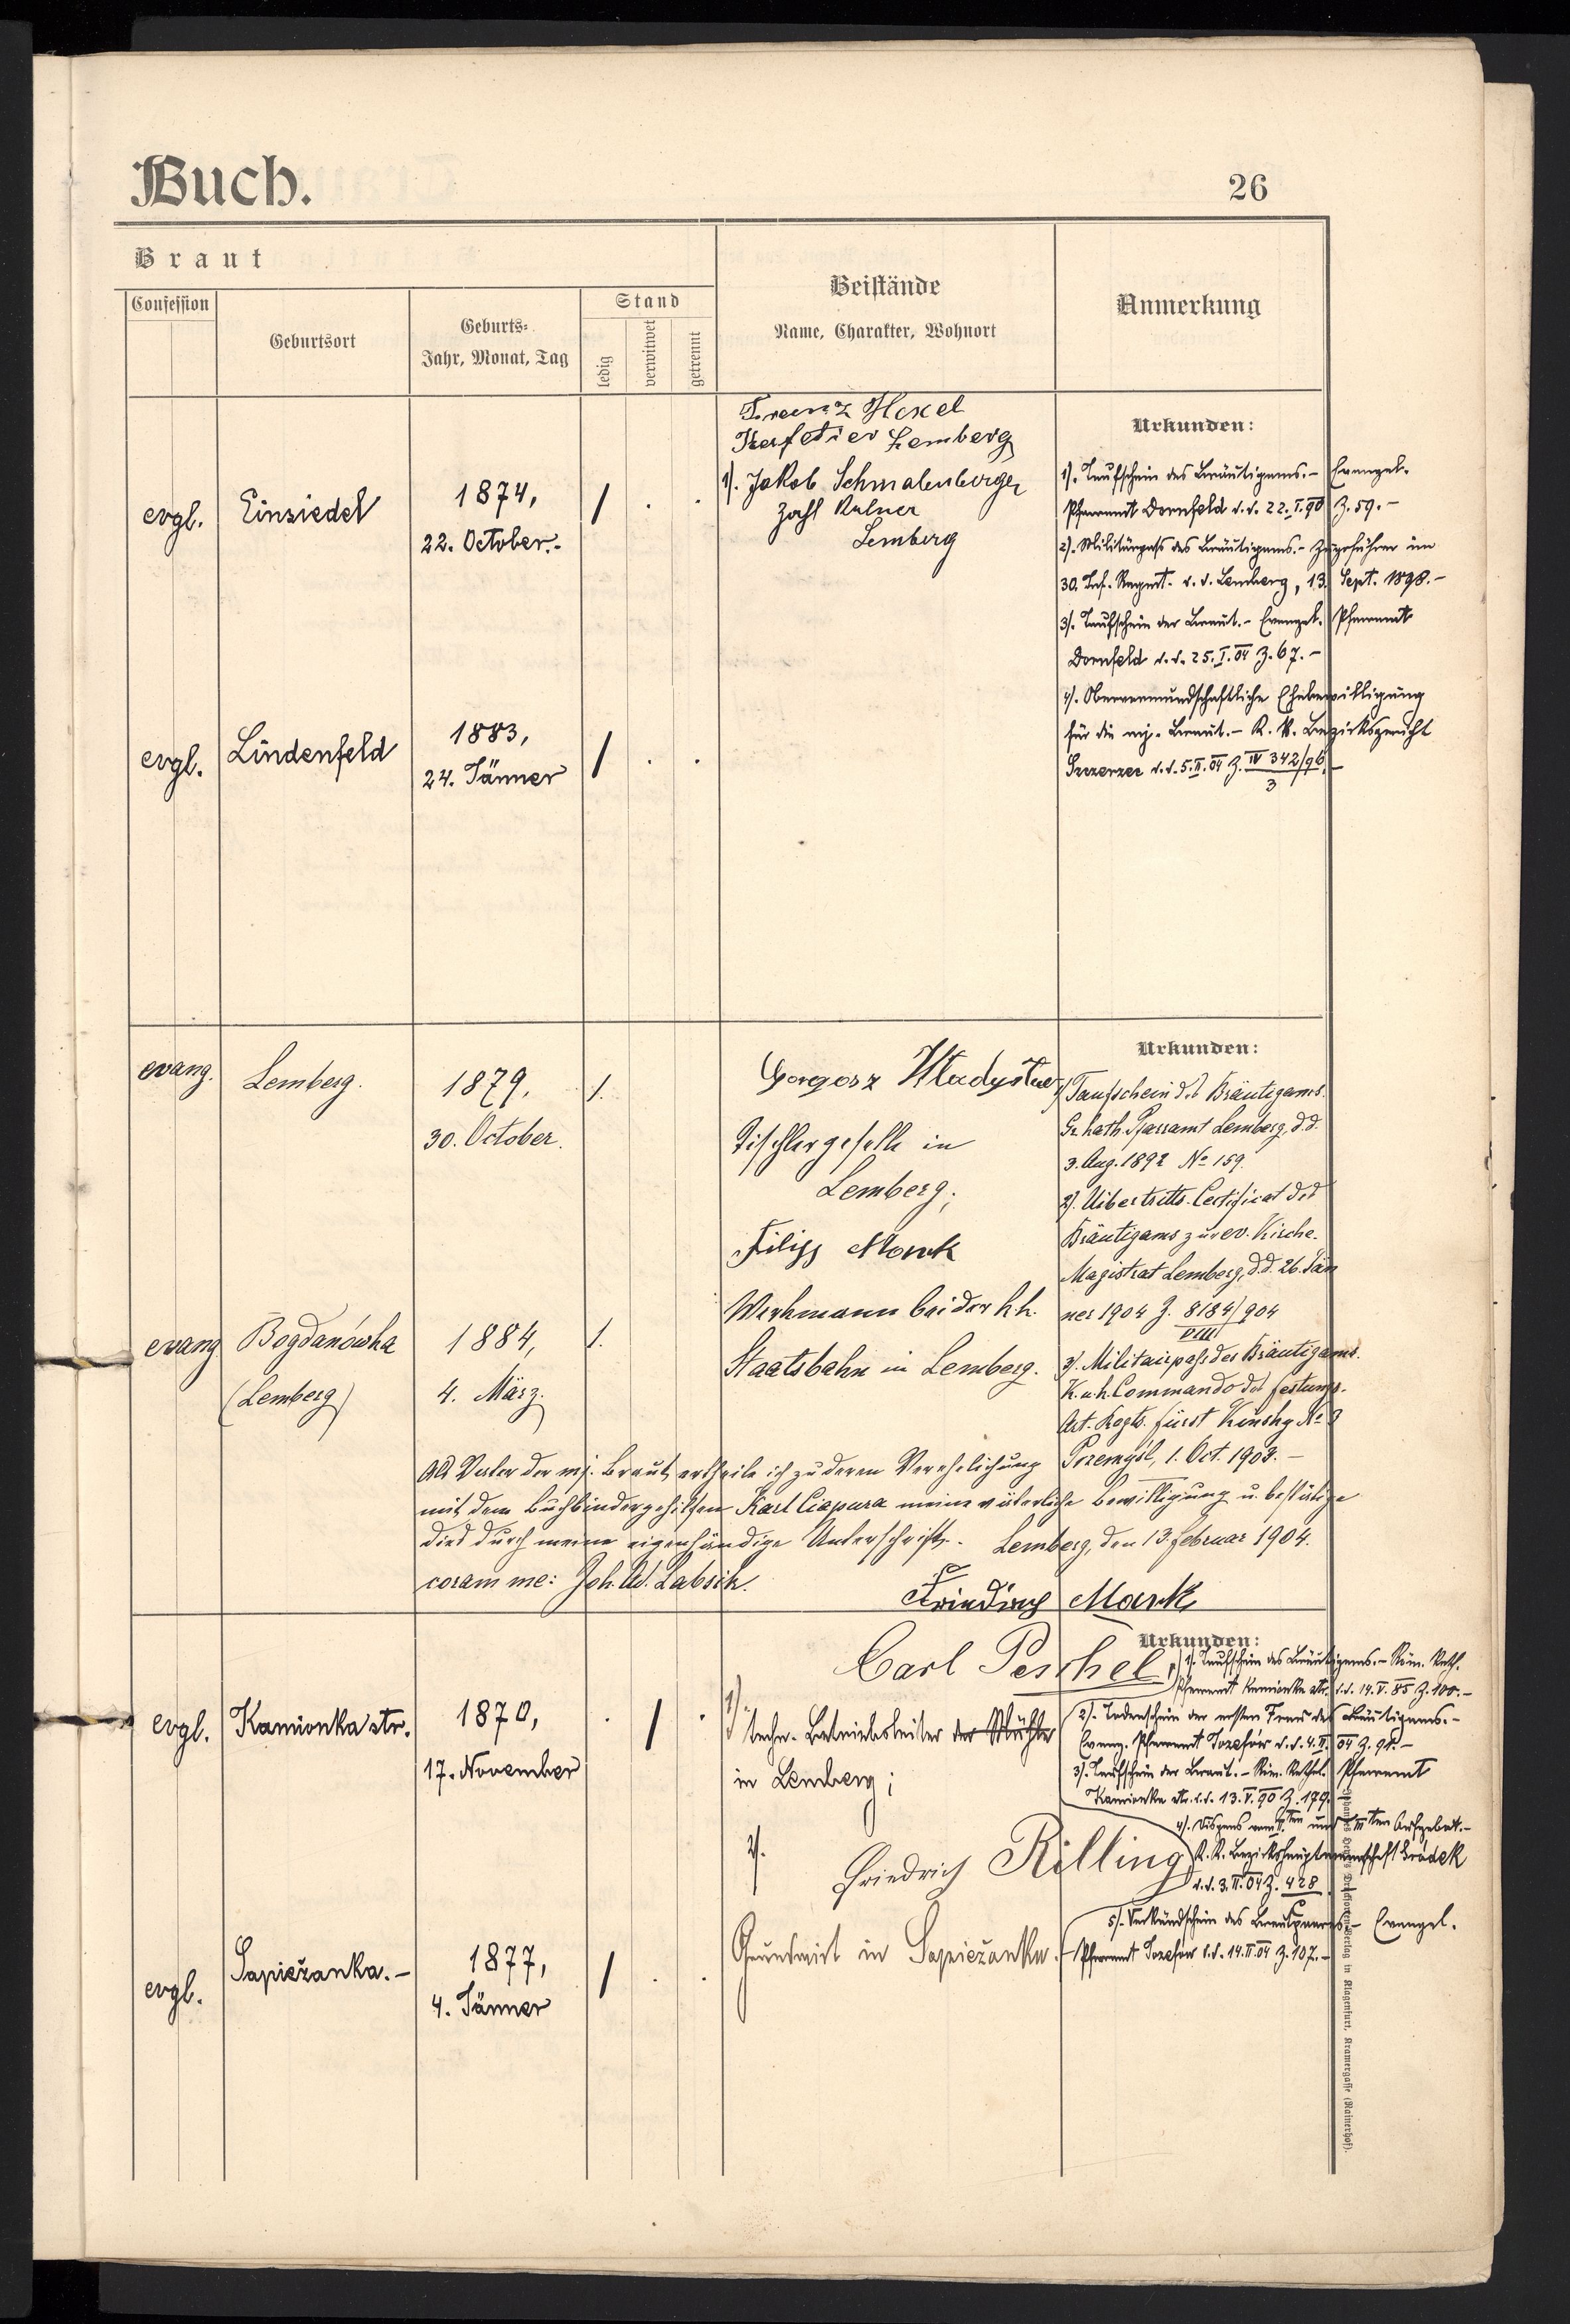 Buch.
26
Braut
Confession
Geburtsort
Geburts-
Jahr, Monat, Tag
Stand
ledig
verwitwet
getrennt
Beistände
Name, Charakter, Wohnort
Anmerkung
Franz Hexel
Lemberg
1). Jakob Schmalenberger
Lemberg
evgl.
Einsiedel
1874,
22. October.-
/ . .
Urkunden:
1). Taufschein des Bräutigams.- Evangel.
Pfarramt Dornfeld d.d. 22.I.90 Z. 59.-
2). Militärpaß des Bräutigams.- Zugsführer im
30. Inf. Regmt. d.d. Lemberg, 13. Sept. 1898.-
3). Taufschein der Braut.- Evangel. Pfarramt
Dornfeld d.d. 25.I.04 Z. 67.-
4). Obervormundschaftliche Ehebewilligung
für die mj. Braut.- K.K. Bezirksgericht
Szczerzec d.d. 5.II.04 Z. IV 342/96.-
3
evgl.
Lindenfeld
1883,
24. Jänner
/ . .
evang.
Lemberg.
1879.
30. October.
1.
Gorgosz Władysław
Tischlergeselle in
Lemberg;
Filipp Mark
Werkmann bei der k.k.
Staatsbahn in Lemberg.
Urkunden:
1) Taufschein des Bräutigams.
Gr. kath. Pfarramt Lemberg, d.d.
3. Aug. 1892 No 159.
2). Uibertritts-Certificat des
Bräutigams zur ev. Kirche.
Magistrat Lemberg, d.d. 26. Jän
ner 1904 Z. 8184/904
VIII
3). Militairpaß des Bräutigams.
K.u.k. Commando des Festungs-
Art. Regts. Fürst Kinsky No 3
Przemyśl, 1. Oct. 1903.-
evang.
Bogdanówka
(Lemberg)
1884,
4. März.
1.
Als Vater der mj. Braut ertheile ich zu deren Verehelichung
mit dem Buchbindergehilfen Karl Ciapura meine väterliche Bewilligung u. bestätige
dies durch meine eigenhändige Unterschrift. Lemberg, den 13. Februar 1904.
coram me: Joh. Labsik.
Mark
evgl.
Kamionka str.
1870,
17. November
. / .
Carl Peschel,
1).
techn. Betriebsleiter der Mühle
in Lemberg;
2).
Friedrich Rilling
Grundwirt in Sapieżanka.
Urkunden:
1). Taufschein des Bräutigams.- Röm. Kath.
Pfarramt Kamionka str. d.d. 14.V.85 Z. 100.-
2). Todenschein der ersten Frau des Bräutigams.-
Evang. Pfarramt Józefów d.d. 4.II.04 Z. 91.-
3). Taufschein der Braut.- Röm. Kathol. Pfarramt
Kamionka str. d.d. 13.V.90 Z. 179.-
4). Dispens vom II.ten und III.ten Aufgebot.-
K.K. Bezirkshauptmannschaft Gródek
d.d. 3.II.04 Z. 428
5). Verkündschein des Brautpaares.- Evangel.
Pfarramt Józefów d.d. 14.II.04 Z. 107.-
evgl.
Sapieżanka.-
1877,
4. Jänner
/ . .
Verlag in Klagenfurt, Kramergasse (Rainerhof).